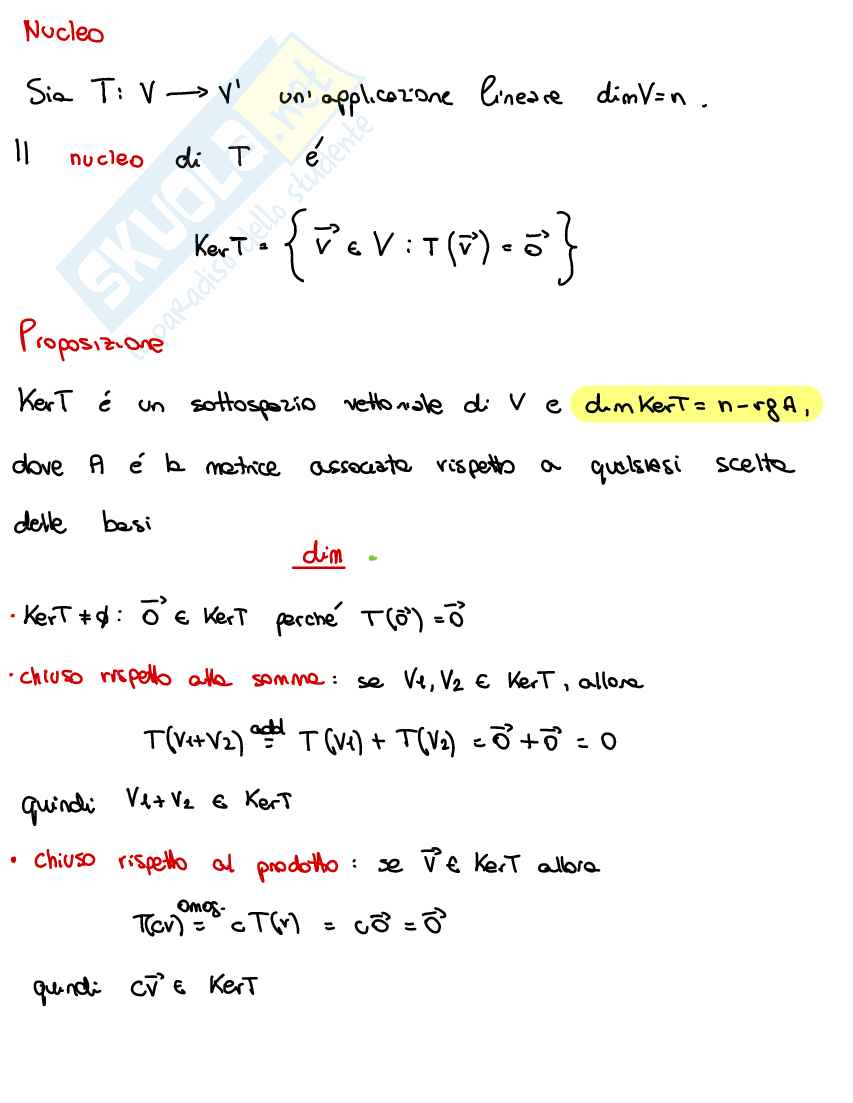 Nucleo
Sia T: V → V' un'applicazione lineare dimV=n.
Il nucleo di T é
KerT = { v⃗ ∈ V : T(v⃗) = 0⃗ }
Proposizione
KerT é un sottospazio vettoriale di V e dimKerT = n-rgA,
dove A é la matrice associata rispetto a qualsiasi scelta
delle basi
dim
• KerT ≠ ∅: 0⃗ ∈ KerT perché T(0⃗) = 0⃗
• chiuso rispetto alla somma: se V1, V2 ∈ KerT, allora
T(V1+V2) add= T(V1) + T(V2) = 0⃗ + 0⃗ = 0
quindi V1+V2 ∈ KerT
• chiuso rispetto al prodotto: se v⃗ ∈ KerT allora
T(cv) omog.= cT(v) = c0⃗ = 0⃗
quindi cv⃗ ∈ KerT
SKUOLA.net
il paradiso dello studente